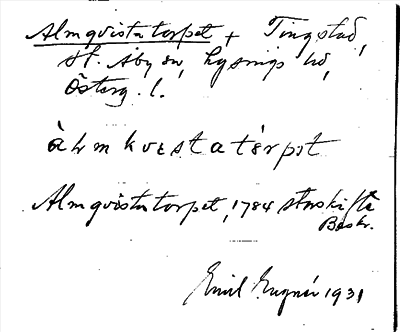 Almqvistatorpet, Tingstad,
st. Åby sn, Lysings hd,
Österg. l.
àlmkvɛstatérpɔt
Almqvistatorpet, 1784 storskifte
Beskr.
Emil 1931